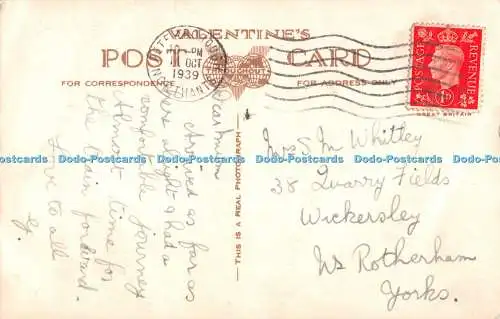 VALENTINE'S
POST CARD
FOR CORRESPONDENCE
FOR ADDRESS ONLY
PM
OCT
1939
NORTHANTS
POSTAGE
REVENUE
1D
GREAT BRITAIN
THIS IS A REAL PHOTOGRAPH
Dear Mum
Arrived as far as
here alright & had a
comfortable journey
Almost time for
the train forward.
Love to all
Mrs S. M. Whitley
38 Quarry Fields
Wickersley
Nr Rotherham
Yorks.
Dodo-Postcards Dodo-Postcards Dodo-Postcards Dodo-Postcards Dodo-Postcards Dodo-Postcards